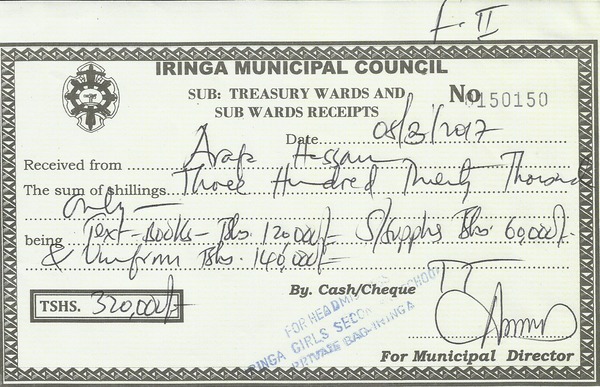 F. II
IRINGA MUNICIPAL COUNCIL
SUB: TREASURY WARDS AND
SUB WARDS RECEIPTS
No 150150
Date 08/3/2017
Received from Arafa Hassan
The sum of shillings Three Hundred Twenty Thousand
only —
being Text-Books - Tshs. 120,000/= S/Supplies Tshs. 60,000/=
& Uniform Tshs. 140,000/=
TSHS. 320,000/=
By. Cash/Cheque
FOR HEADMISTRESS
IRINGA GIRLS SECONDARY SCHOOL
PRIVATE BAG-IRINGA
For Municipal Director